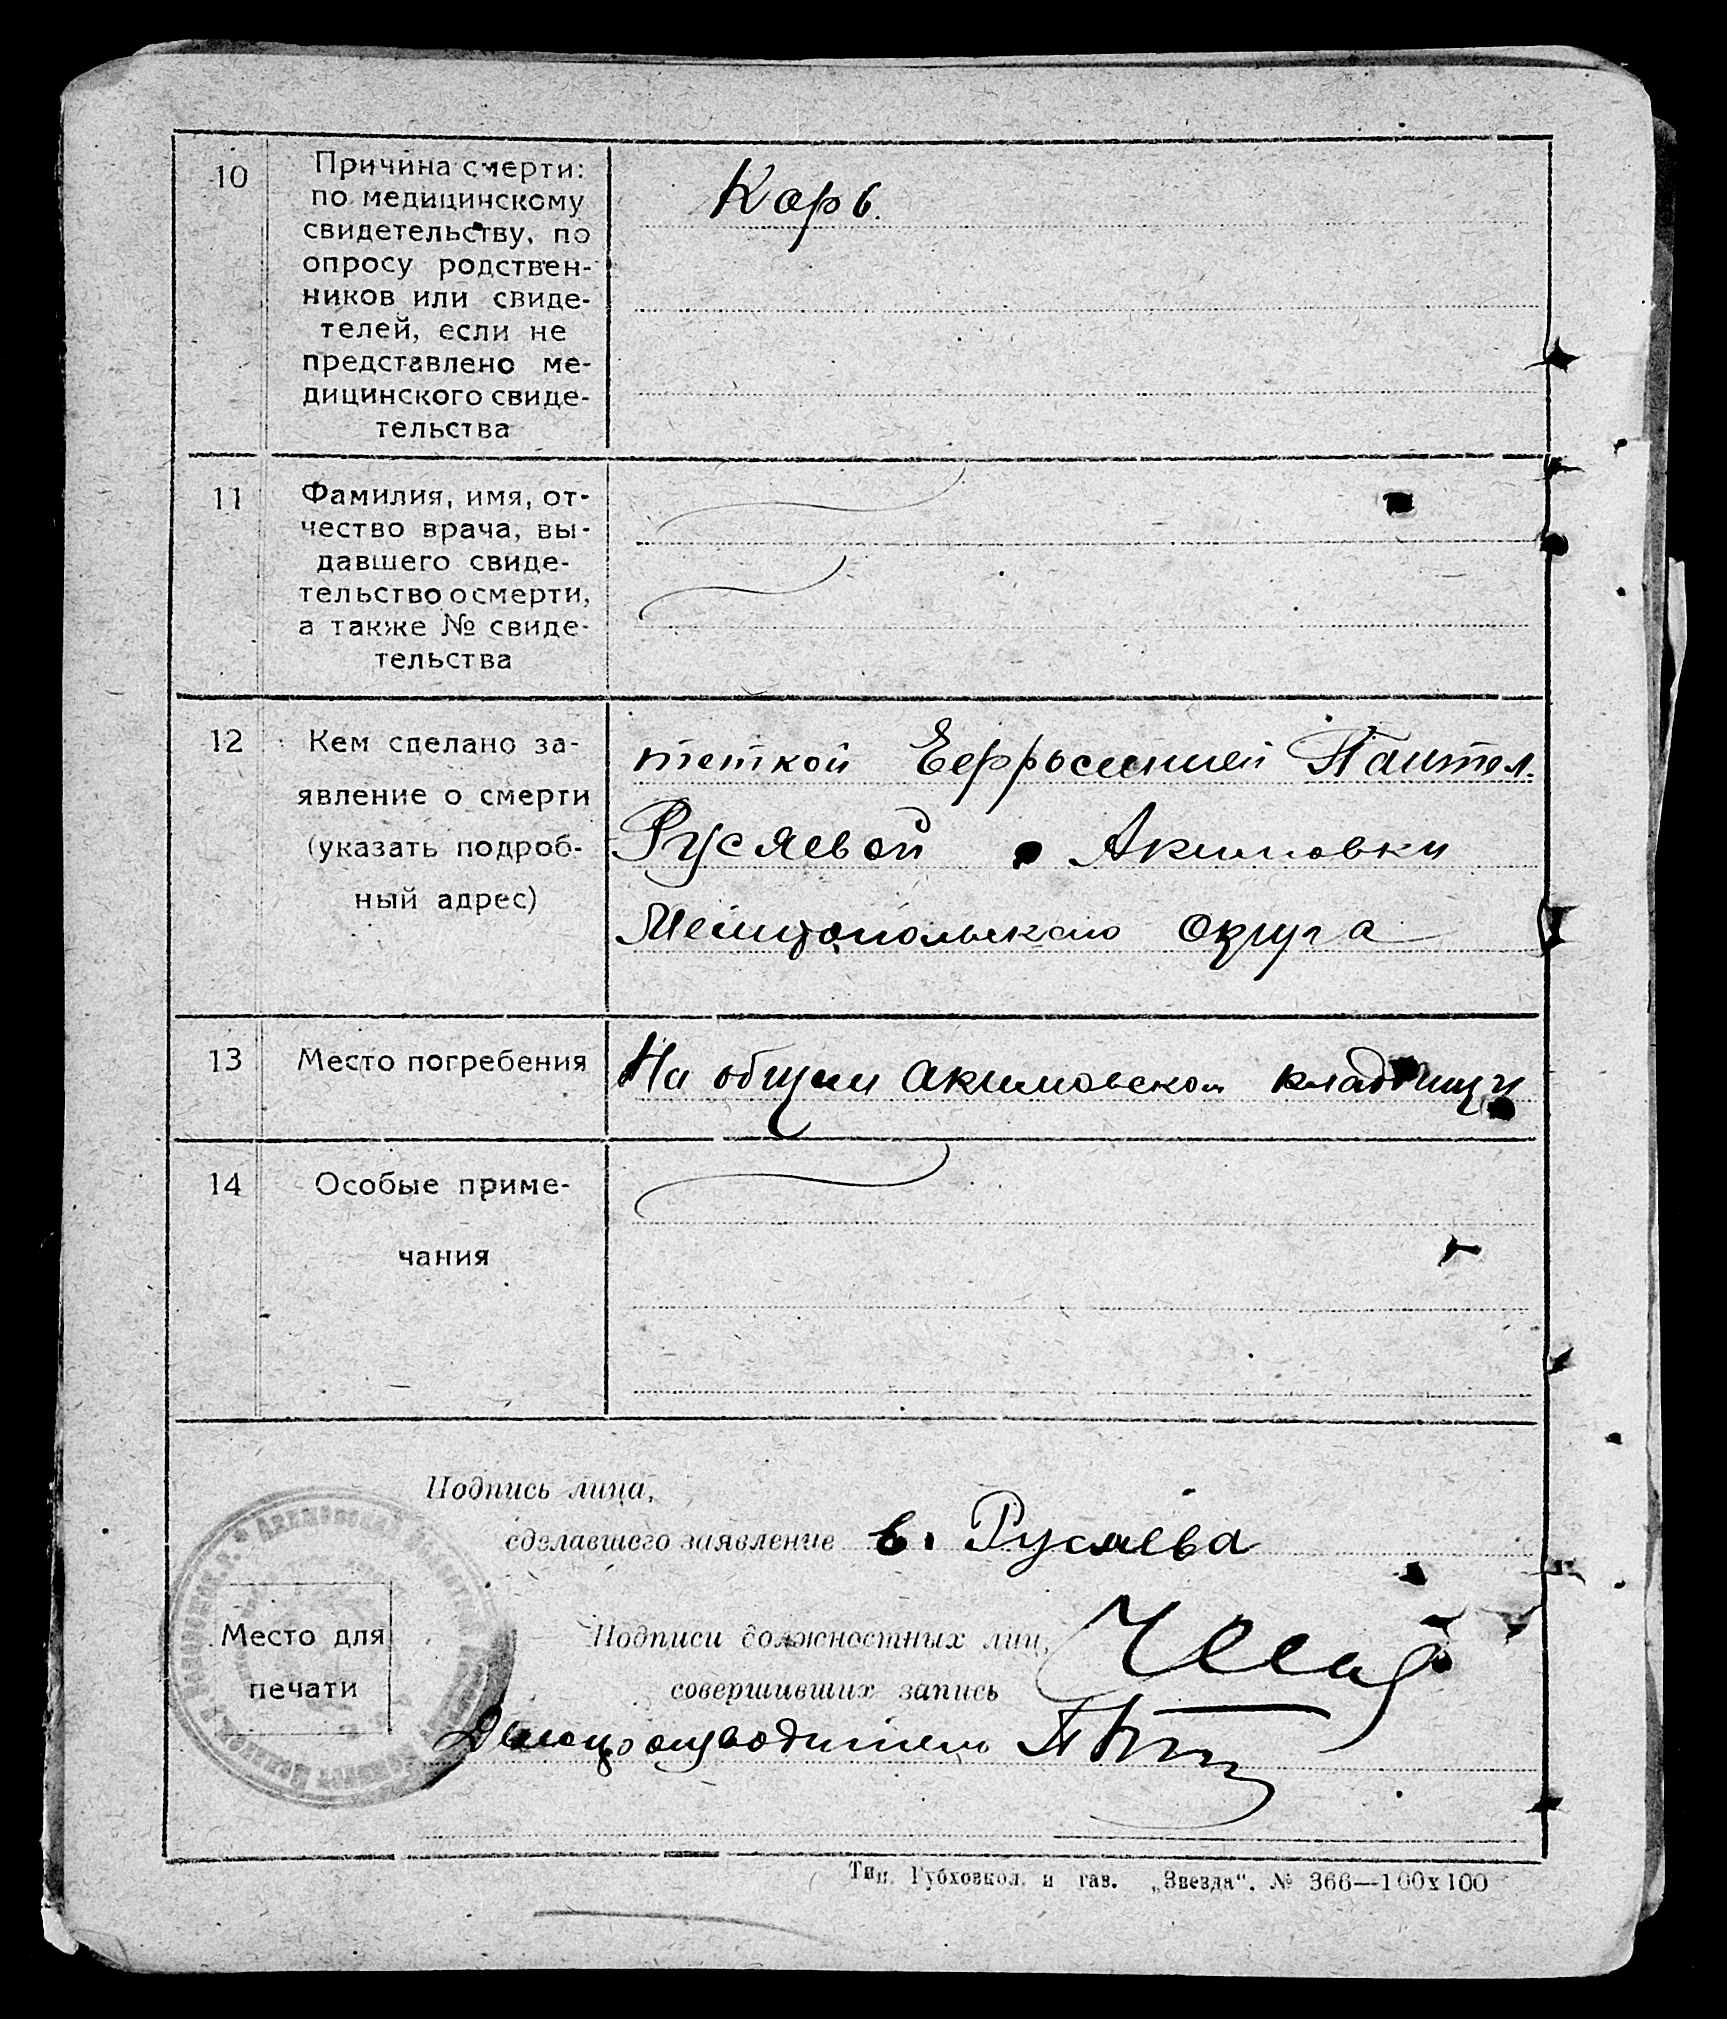 10
Причина смерти:
по медицинскому
свидетельству, по
опросу родствен-
ников или свиде-
телей, если не
представлено ме-
дицинского свиде-
тельства
Корь.
11
Фамилия, имя, от-
чество врача, вы-
давшего свиде-
тельство о смерти,
а также № свиде-
тельства
12
Кем сделано за-
явление о смерти
(указать подроб-
ный адрес)
теткой Ефросинией Пантел.
Русяевой Акимовки
Мелитопольского округа
13
Место погребения
На общем акимовском кладбищи
14
Особые приме-
чания
Подпись лица,
сделавшего заявление в. Русяева
Место для
печати
Подписи должностных лиц,
совершивших запись
Делопроизводитель
Тип. Губховкол. и газ. „Звезда“. № 366—100х100